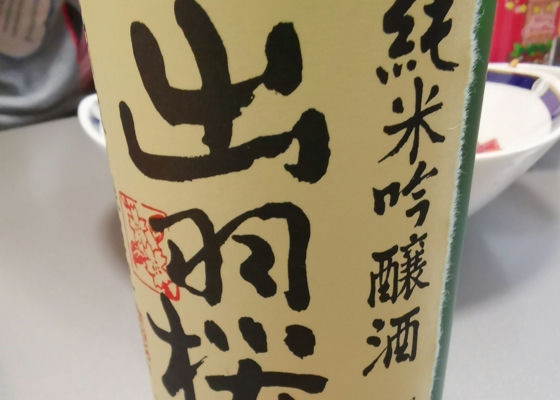 純米吟醸酒
出羽桜